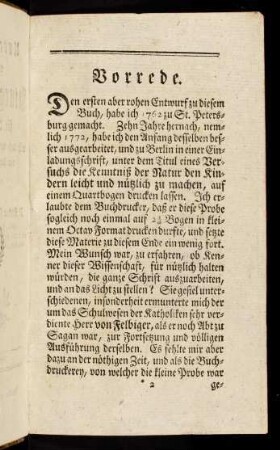 Vorrede.
Den ersten aber rohen Entwurf zu diesem
Buch, habe ich 1762 zu St. Peters-
burg gemacht. Zehn Jahre hernach, nem-
lich 1772, habe ich den Anfang desselben bes-
ser ausgearbeitet, und zu Berlin in einer Ein-
ladungsschrift, unter dem Titul eines Ver-
suchs die Kenntniß der Natur den Kin-
dern leicht und nützlich zu machen, auf
einem Quartbogen drucken lassen. Ich er-
laubte dem Buchdrucker, daß er diese Probe
sogleich noch einmal auf 2½ Bogen in klei-
nem Octav Format drucken durfte, und setzte
diese Materie zu diesem Ende ein wenig fort.
Mein Wunsch war, zu erfahren, ob Ken-
ner dieser Wissenschaft, für nützlich halten
würden, die ganze Schrift auszuarbeiten,
und an das Licht zu stellen? Sie gefiel unter-
schiedenen, insonderheit ermunterte mich der
um das Schulwesen der Katholiken sehr ver-
diente Herr von Felbiger, als er noch Abt zu
Sagan war, zur Fortsetzung und völligen
Ausführung derselben. Es fehlte mir aber
dazu an der nöthigen Zeit, und als die Buch-
druckerey, von welcher die kleine Probe war
* 2 ge-